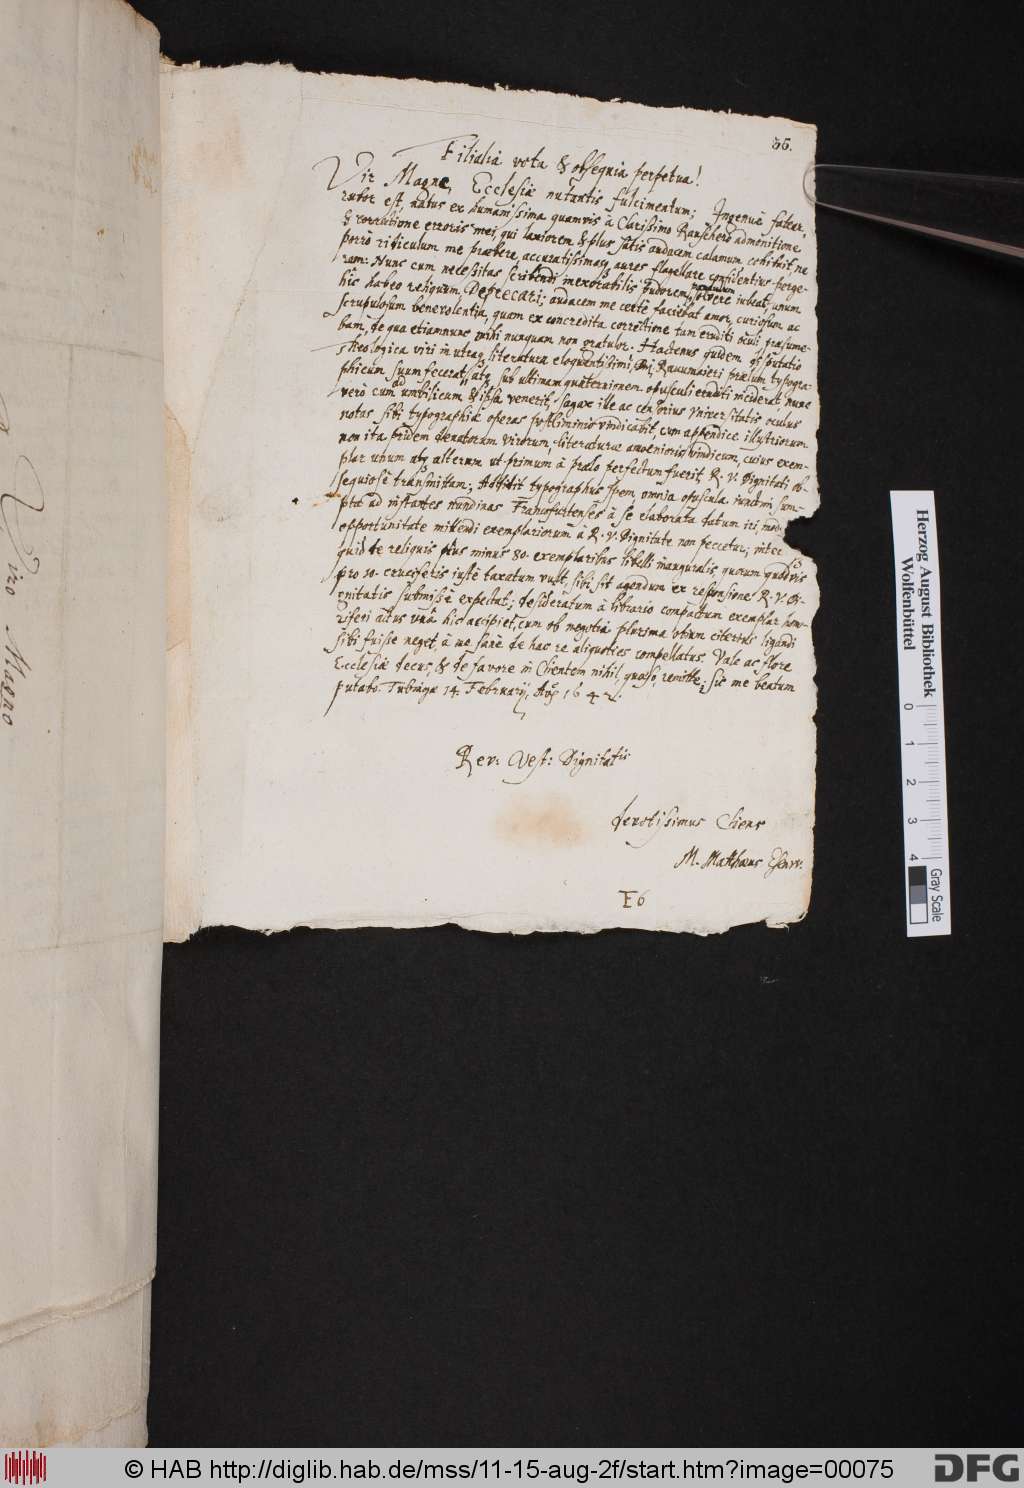 35.
Filialia vota & obsequia perpetua!
Vir Magne, Ecclesiæ nutantis fulcimentum; Ingenuè fateor,
rubor est, natus ex humanissima quamvis à Clarissimo Rauschero admonitione
& correctione erroris mei, qui laxiorem & plus satis audacem calamum cohibuit, ne
porrò ridiculum me præbere, accuratissimasq aures flagellare confidentius perge-
rem: Nunc cum necessitas scribendi inexorabilis pudorem solvere iubeat, unum
hîc habeo reliquum Deprecari; audacem me certè faciebat amor, curiosum ac
scrupulosum benevolentia, quam ex concredita correctione tam eruditi oculi præsume-
bam, de qua etiamnunc mihi nunquam non gratulor. Hactenus quidem disputatio
Theologica viri in utraq literatura eloquentissimi, Raumaieri prælum typogra-
phicum suum fecerat, atq sub ultimam quaternionem opusculi eruditi inciderat, nunc
verò cum ad umbilicum & ipsa venerit, sagax ille ac censorius Universitatis oculus
notas sibi typographiæ operas postliminiò vindicabit, cum appendice illustriorum
non ita pridem denatorum virorum, literaturæ amoenioris vindicum, cuius exem-
plar unum atq alterum ut primum à prælo perfectum fuerit, R. V. Dignitati ob-
sequiosè transmittam; Addidit typographus spem, omnia opuscula iunctim sum-
ptæ ad instantes nundinas Francofurtenses à se elaborata datum iri, mod
opportunitate mittendi exemplariorum à R. V. Dignitate non peccetur, inter
quid de reliquis plus minus 80. exemplaribus libelli inauguralis, quorum quodvis
pro 10. cruciferis iustè taxatum vult, sibi sit agendum ex responsione R. V. Di-
gnitatis submissè expectat; desideratum à librario compactum exemplar hono-
riferi actus unà hîc accipiet, cum ob negotia plurima otium citerius ligandi
sibi fuisse neget, à me sanè de hac re aliquoties compellatus. Vale ac flore
Ecclesiæ decus, & de favore in Clientem nihil, quæso, remitte; sic me beatum
putabo. Tubingæ 14. Februarij, 1642.
Rev: Vest: Dignitatis
devotissimus Cliens
M. Matthæus Esenw:
E6
Viro Magno
Herzog August Bibliothek
Wolfenbüttel
0 1 2 3 4
Gray Scale
© HAB http://diglib.hab.de/mss/11-15-aug-2f/start.htm?image=00075
DFG